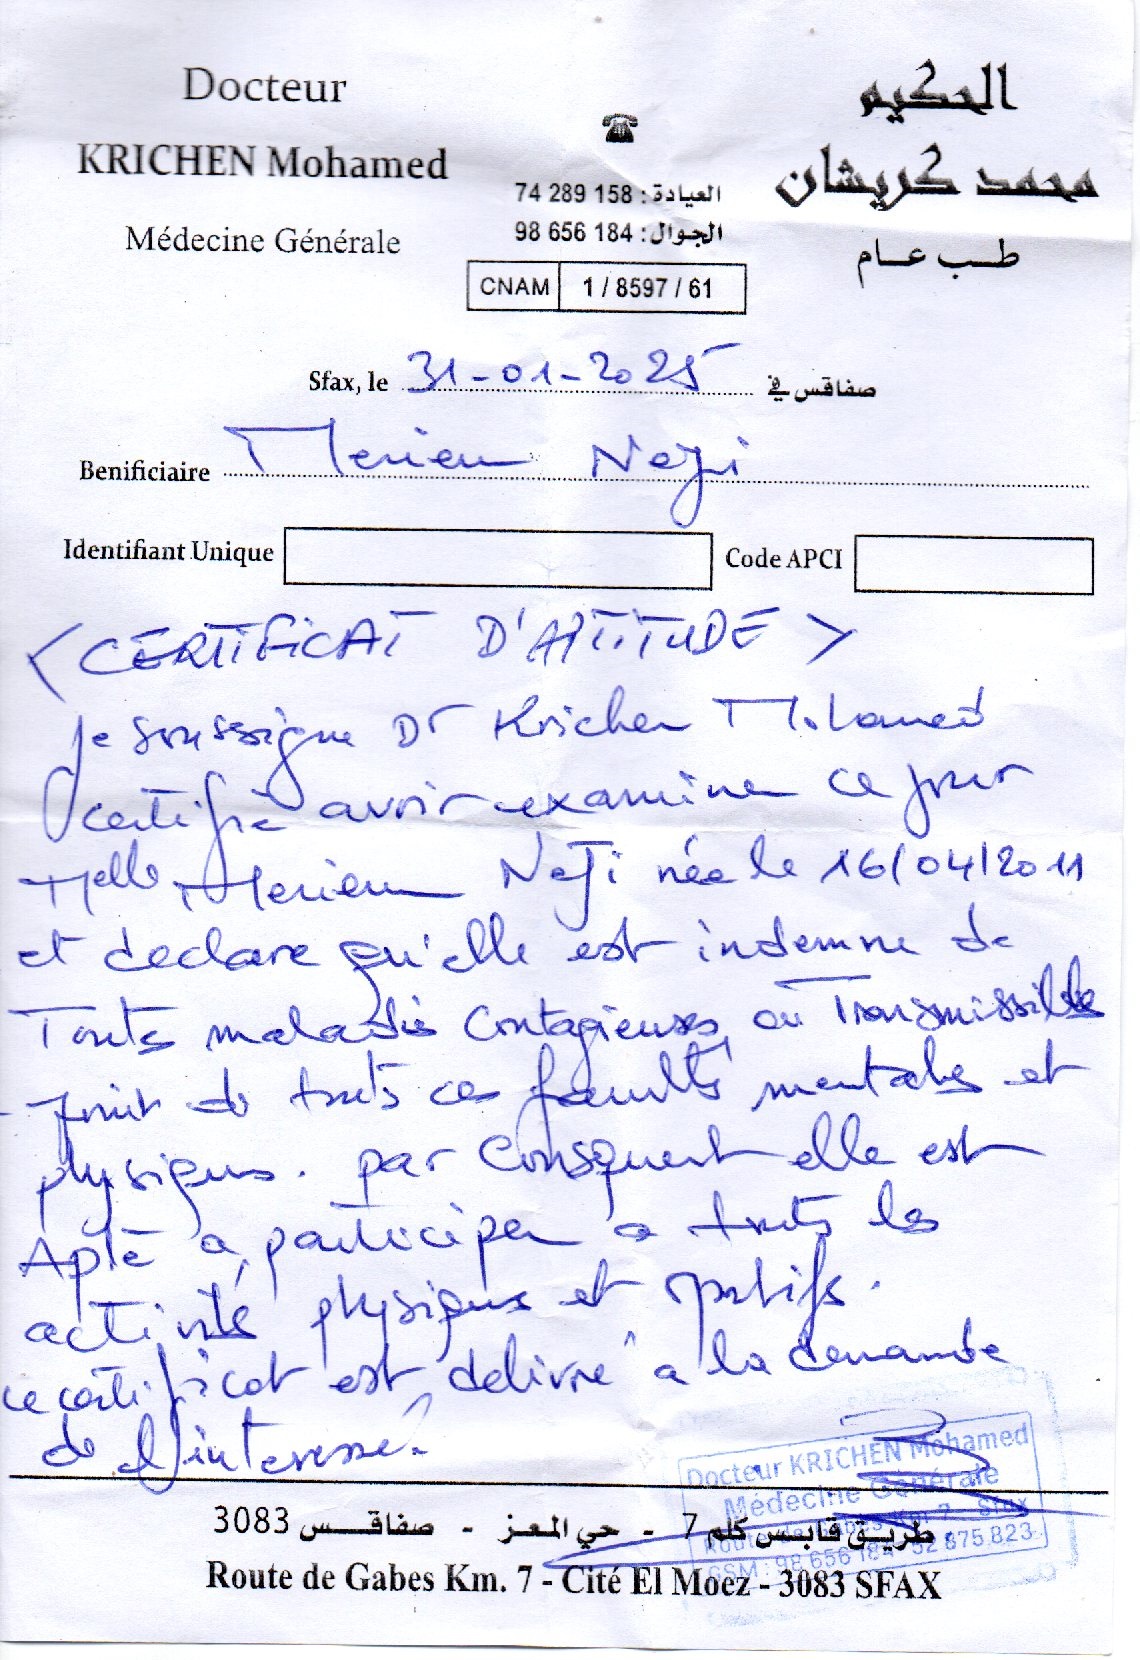 Docteur
KRICHEN Mohamed
Médecine Générale
العيادة : 74 289 158
الجوال : 98 656 184
CNAM 1 / 8597 / 61
الحكيم
محمد كريشان
طب عام
Sfax, le 31-01-2025 صفاقس في
Benificiaire Meriem Neji
Identifiant Unique
Code APCI
< CERTIFICAT D'APTITUDE >
je soussigne Dr Krichen Mohamed
certifie avoir examiner ce jour
Melle Meriem Neji née le 16/04/2011
et declare qu'elle est indemne de
Touts maladies contagieuses ou Transmissibles
jouir de touts ces facultés mentales et
physiques. par Consquent elle est
Apte a participer a touts les
activités physiques et sportifs.
ce certificat est delivré a la demande
de l'interessé.
Docteur KRICHEN Mohamed
Médecine Générale
Route de Gabes Km 7 - Sfax
GSM : 98 656 184 - 52 875 823
طريق قابس كلم 7 - حي المعز - صفاقس 3083
Route de Gabes Km. 7 - Cité El Moez - 3083 SFAX